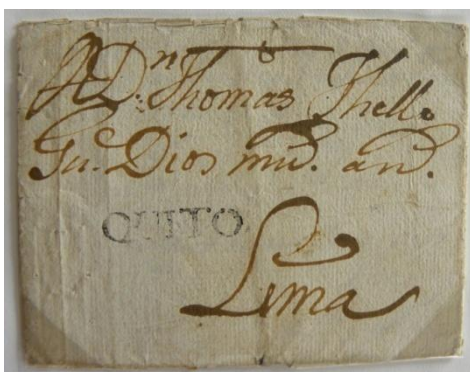 A Dn. Thomas Thello
Gu. Dios ms. as.
QUITO
Lima